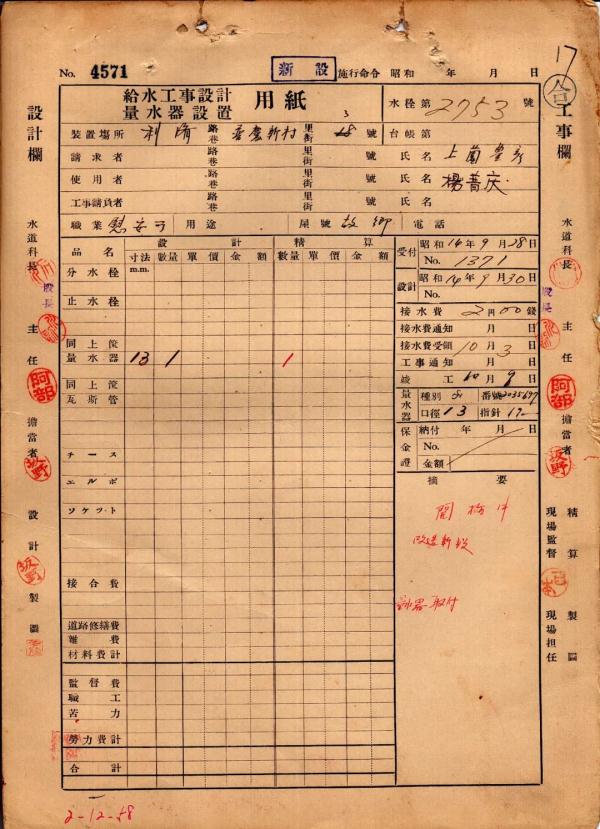 No. 4571 新設 施行命令 昭和 年 月 日
17
給水工事設計
量水器設置 用紙 水栓第 2753 號
裝置場所 路巷 里街 號 台帳第
請求者 路巷 里街 號 氏名
使用者 路巷 里街 號 氏名 楊普庆
工事請負者 路巷 里街 號 氏名
職業 用途 屋號 故鄉 電話
品名 設計 精算
寸法 數量 單價 金額 數量 單價 金額
m.m.
分水栓
止水栓
同上流
量水器 13 1 1
同上流
瓦斯管
チース
エルボ
ソケット
接合費
道路修繕費
雜費
材料費計
監督費
職工
苦力
勞力費計
合計
受付 昭和 14年 9月 28日
No. 1371
設計 昭和 14年 9月 30日
No.
接水費 2円00錢
接水費通知 月 日
接水費受領 10月 3日
工事通知 月 日
竣工 10月 9日
量水器 種別 番號
口徑 13 指針
保金證 納付 年 月 日
No.
金額
摘要
取付
設計欄
水道科長
股長
主任
阿部
擔當者
坂野
設計
坂野
製圖
工事欄
水道科長
股長
主任
阿部
擔當者
坂野
精算
製圖
現場監督
現場担任
2-12-58